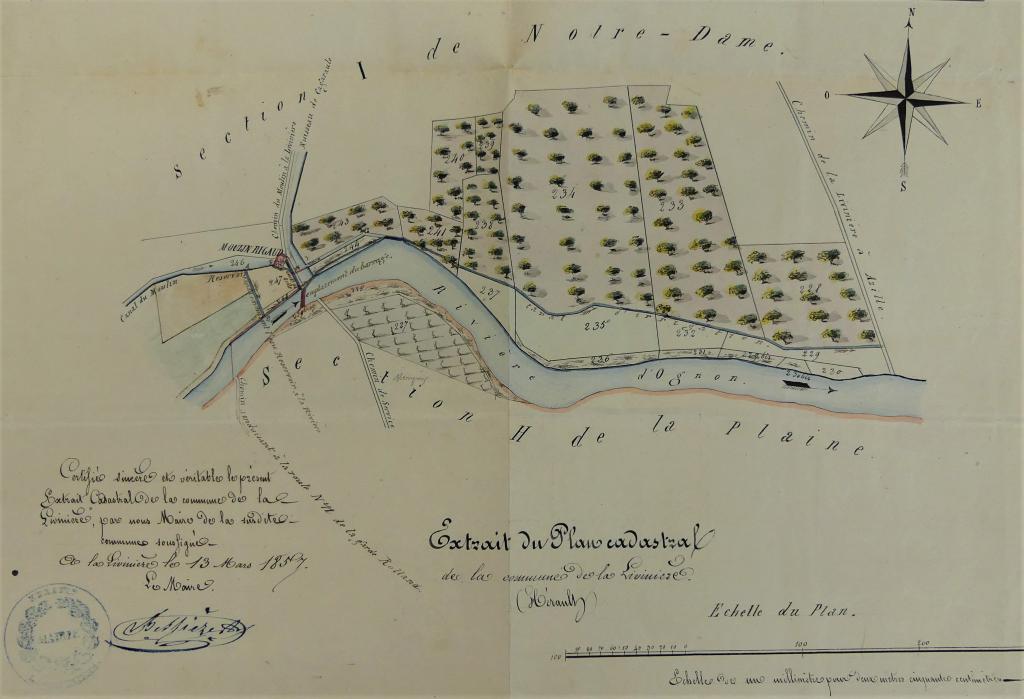 Section I de Notre-Dame.
N
O
E
S
Chemin de la Livinière à Azille
Chemin du Moulin à la Livinière
Ruisseau de
240
239
234
233
243
241
238
244
MOULIN RIGAUD
246
Reservoir
247
Canal du Moulin
emplacement du barrage
237
Rivière d'Ognon.
235
232
228
229
236
230
227
Chemin de Service
Section H de la plaine
Chemin conduisant à la route N° 11 de la
Certifié sincère et véritable le présent
Extrait Cadastral de la commune de la
Livinière, par nous Maire de la susdite
commune soussigné
A la Livinière le 13 Mars 1857.
Le Maire.
MAIRIE
Extrait du Plan cadastral
de la commune de la Livinière.
(Hérault)
Echelle du Plan.
100 90 80 70 60 50 40 30 20 10 0 100 200
Echelle de un millimètre pour deux mètres cinquante centimètres